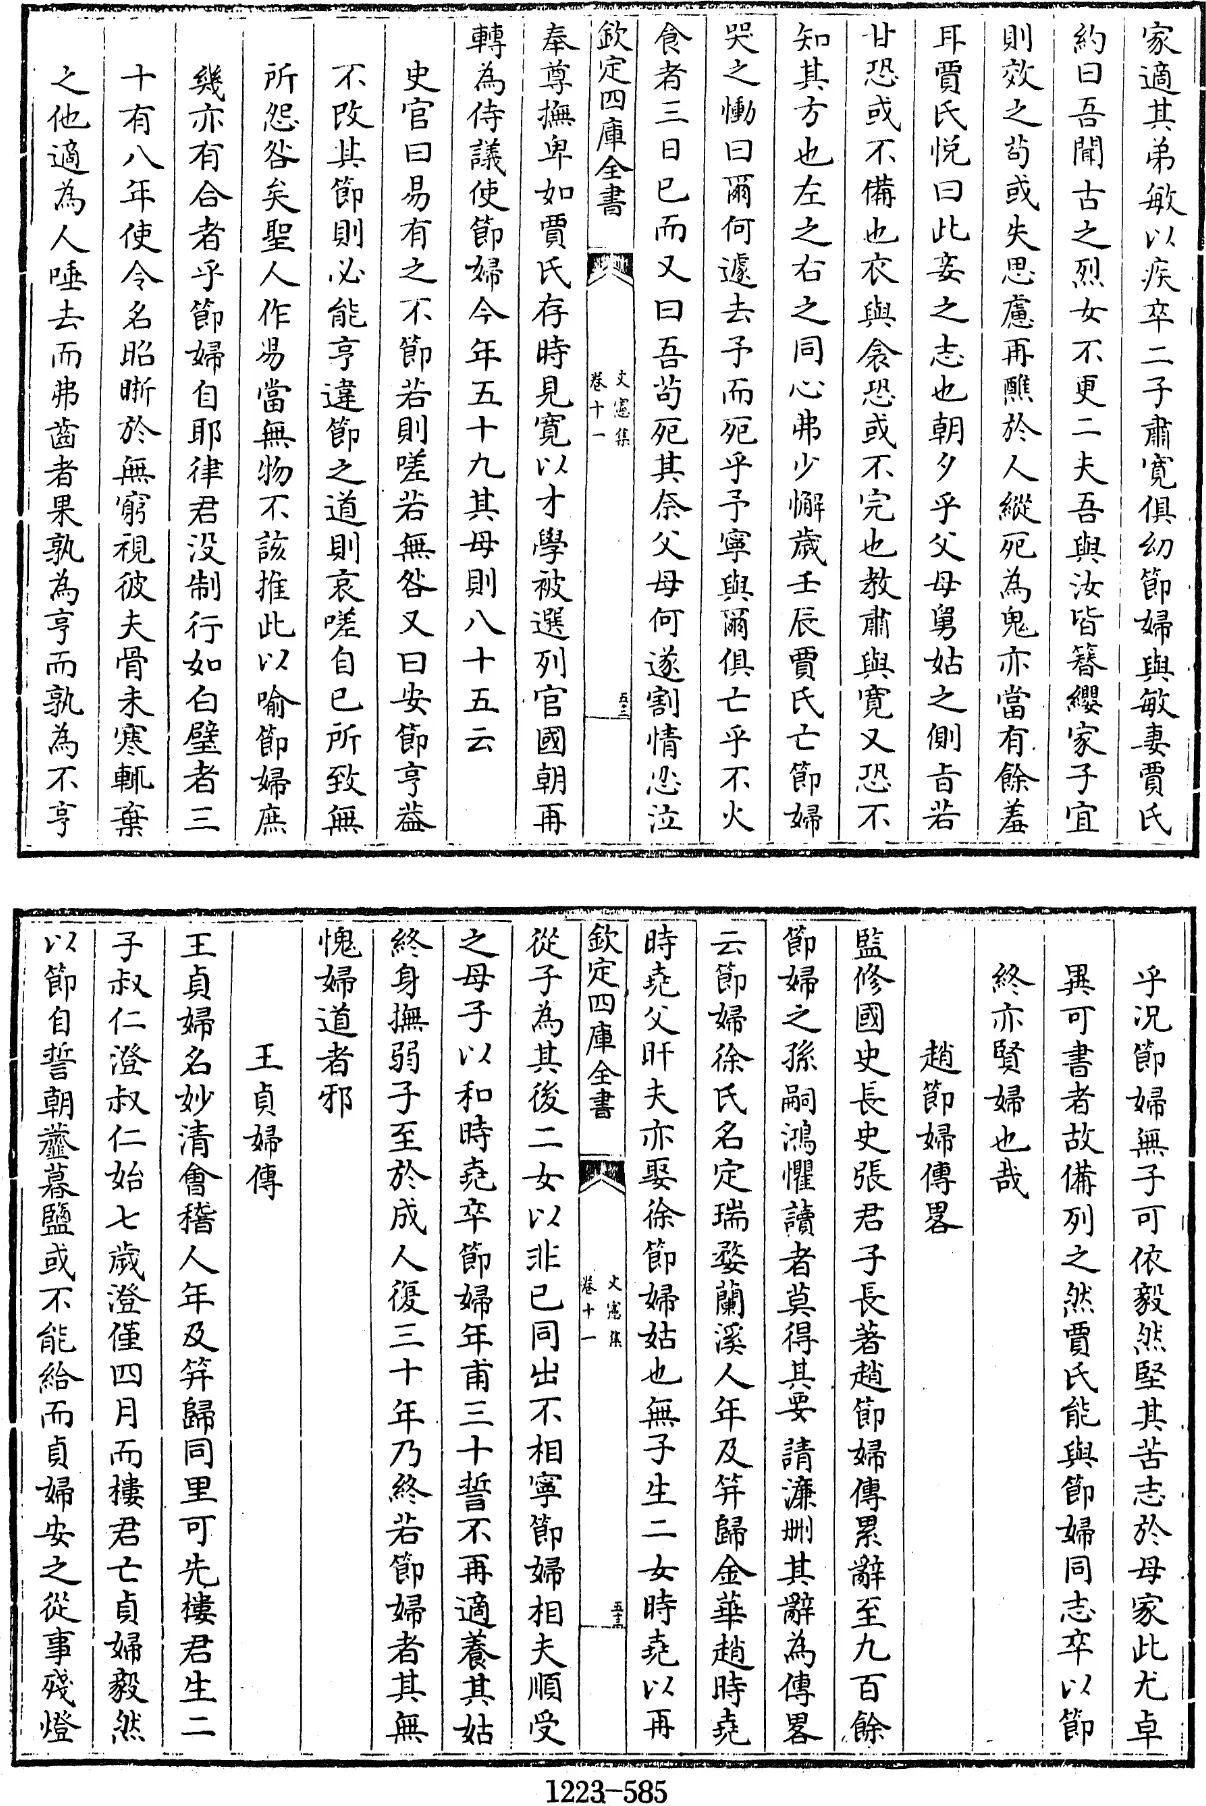 家適其弟敏以疾卒二子肅寛俱幼節婦與敏妻賈氏
約曰吾聞古之烈女不更二夫吾與汝皆簪纓家子宜
則效之茍或失思慮再醮於人縱死為鬼亦當有餘羞
耳賈氏悦曰此妾之志也朝夕乎父母舅姑之側㫖若
甘恐或不備也衣與衾恐或不完也教肅與寛又恐不
知其方也左之右之同心弗少懈歳壬辰賈氏亡節婦
哭之慟曰爾何遽去予而死乎予寧與爾俱亡乎不火
食者三日已而又曰吾茍死其奈父母何遂割情忍泣
欽定四庫全書
文憲集
卷十一
五三
奉尊撫卑如賈氏存時見寛以才學被選列官國朝再
轉為侍議使節婦今年五十九其母則八十五云
史官曰易有之不節若則嗟若無咎又曰安節亨葢
不改其節則必能亨違節之道則哀嗟自已所致無
所怨咎矣聖人作易當無物不該推此以喻節婦庶
幾亦有合者乎節婦自耶律君没制行如白璧者三
十有八年使令名昭晣於無窮視彼夫骨未寒輒棄
之他適為人唾去而弗齒者果孰為亨而孰為不亨
乎況節婦無子可依毅然堅其苦志於母家此尤卓
異可書者故備列之然賈氏能與節婦同志卒以節
終亦賢婦也哉
趙節婦傳畧
監修國史長史張君子長著趙節婦傳累辭至九百餘
節婦之孫嗣鴻懼讀者莫得其要請濂刪其辭為傳畧
云節婦徐氏名定瑞婺蘭溪人年及笄歸金華趙時堯
時堯父盰夫亦娶徐節婦姑也無子生二女時堯以再
欽定四庫全書
文憲集
卷十一
五三
從子為其後二女以非已同出不相寧節婦相夫順受
之母子以和時堯卒節婦年甫三十誓不再適養其姑
終身撫弱子至於成人復三十年乃終若節婦者其無
愧婦道者邪
王貞婦傳
王貞婦名妙清會稽人年及笄歸同里可先樓君生二
子叔仁澄叔仁始七歳澄僅四月而樓君亡貞婦毅然
以節自誓朝虀暮鹽或不能給而貞婦安之從事殘燈
1223-585